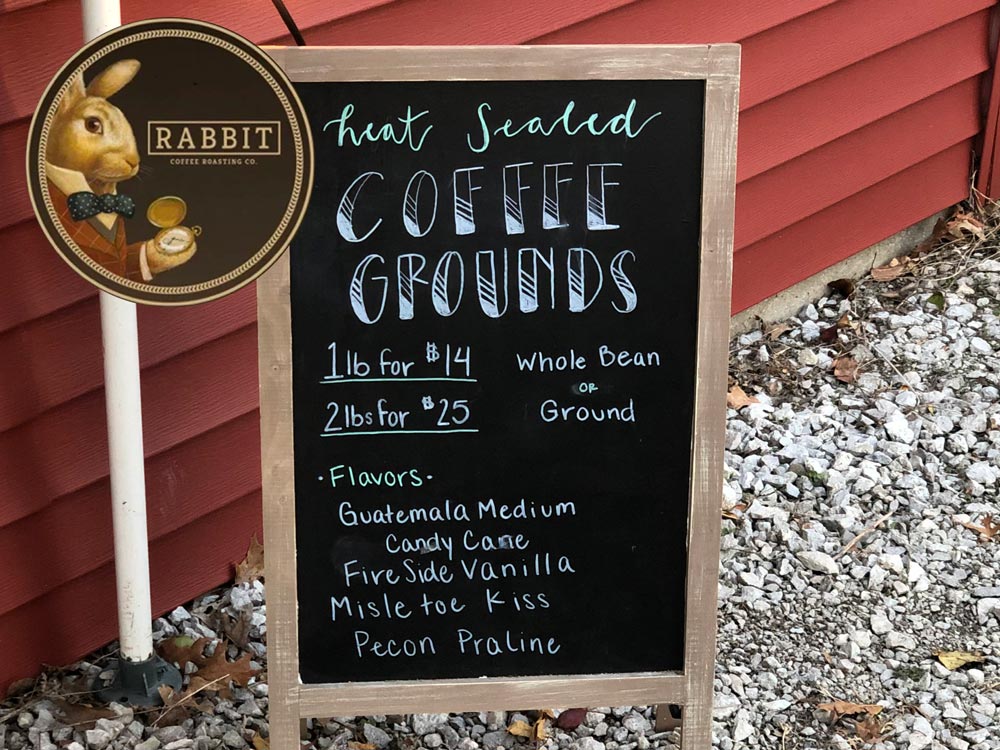 RABBIT
COFFEE ROASTING CO.
heat Sealed
COFFEE
GROUNDS
1lb for $14
2lbs for $25
Whole Bean
OR
Ground
·Flavors·
Guatemala Medium
Candy Cane
Fire Side Vanilla
Misle toe Kiss
Pecon Praline